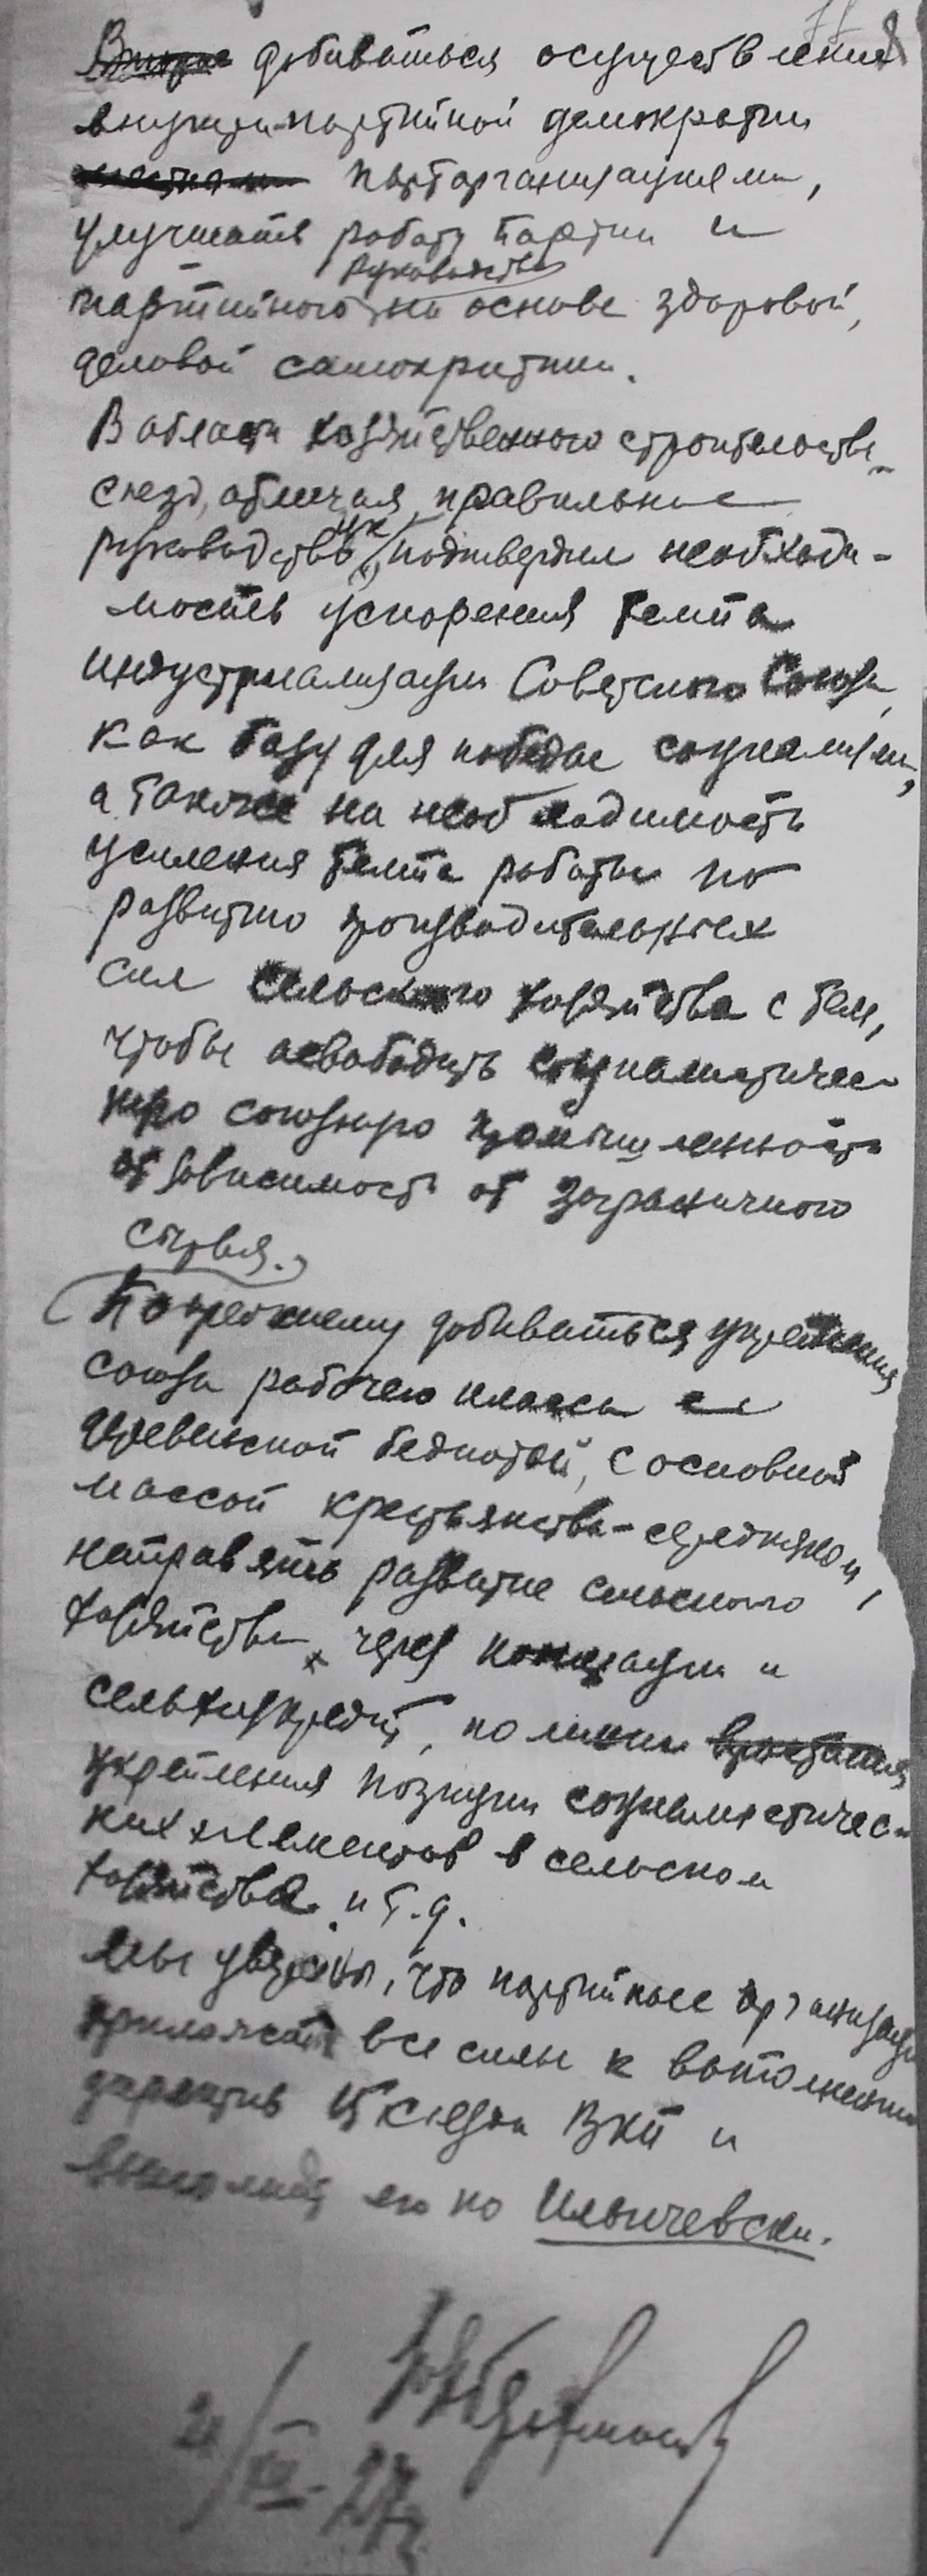 добиваться осуществления
внутри-партийной демократии
парторганизациями,
улучшать работу партии и
руководства
партийного на основе здоровой,
деловой самокритики.
В области хозяйственного строительства
съезд, отмечая правильное
руководство ЦК, подтвердил необходи-
мость ускорения темпа
индустриализации Советского Союза,
как базу для победы социализма,
а также на необходимость
усиления темпа работы по
развитию производительных
сил сельского хозяйства с тем,
чтобы освободить социалистичес-
кую союзную промышленность
от зависимости от заграничного
сырья.
По прежнему добиваться укрепления
союза рабочего класса с
деревенской беднотой, с основной
массой крестьянства-середняком,
направлять развитие сельского
хозяйства через кооперации и
сельхозкредит, по линии врастания
укрепления позиции социалистичес-
ких элементов в сельском
хозяйстве и т.д.
Мы уверены, что партийные организации
приложат все силы к выполнению
директив съезда ВКП и
выполнят его по Ильичевски.
27г.